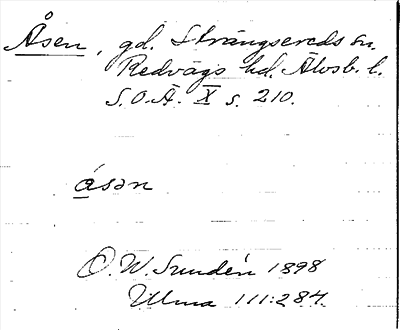 Åsen, gd. Strängsereds sn.
Redvägs hd. Älvsb. l.
S.O.Ä. X s. 210.
åsən
O.W. Sundén 1898
Ulma 111:284.